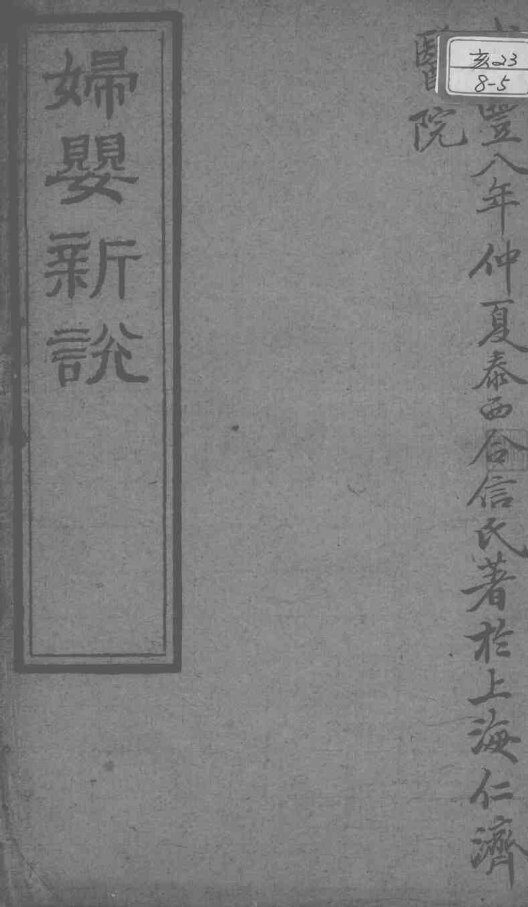 豐八年仲夏泰西合信氏著於上海仁濟
醫院
婦嬰新說
亥23
8-5